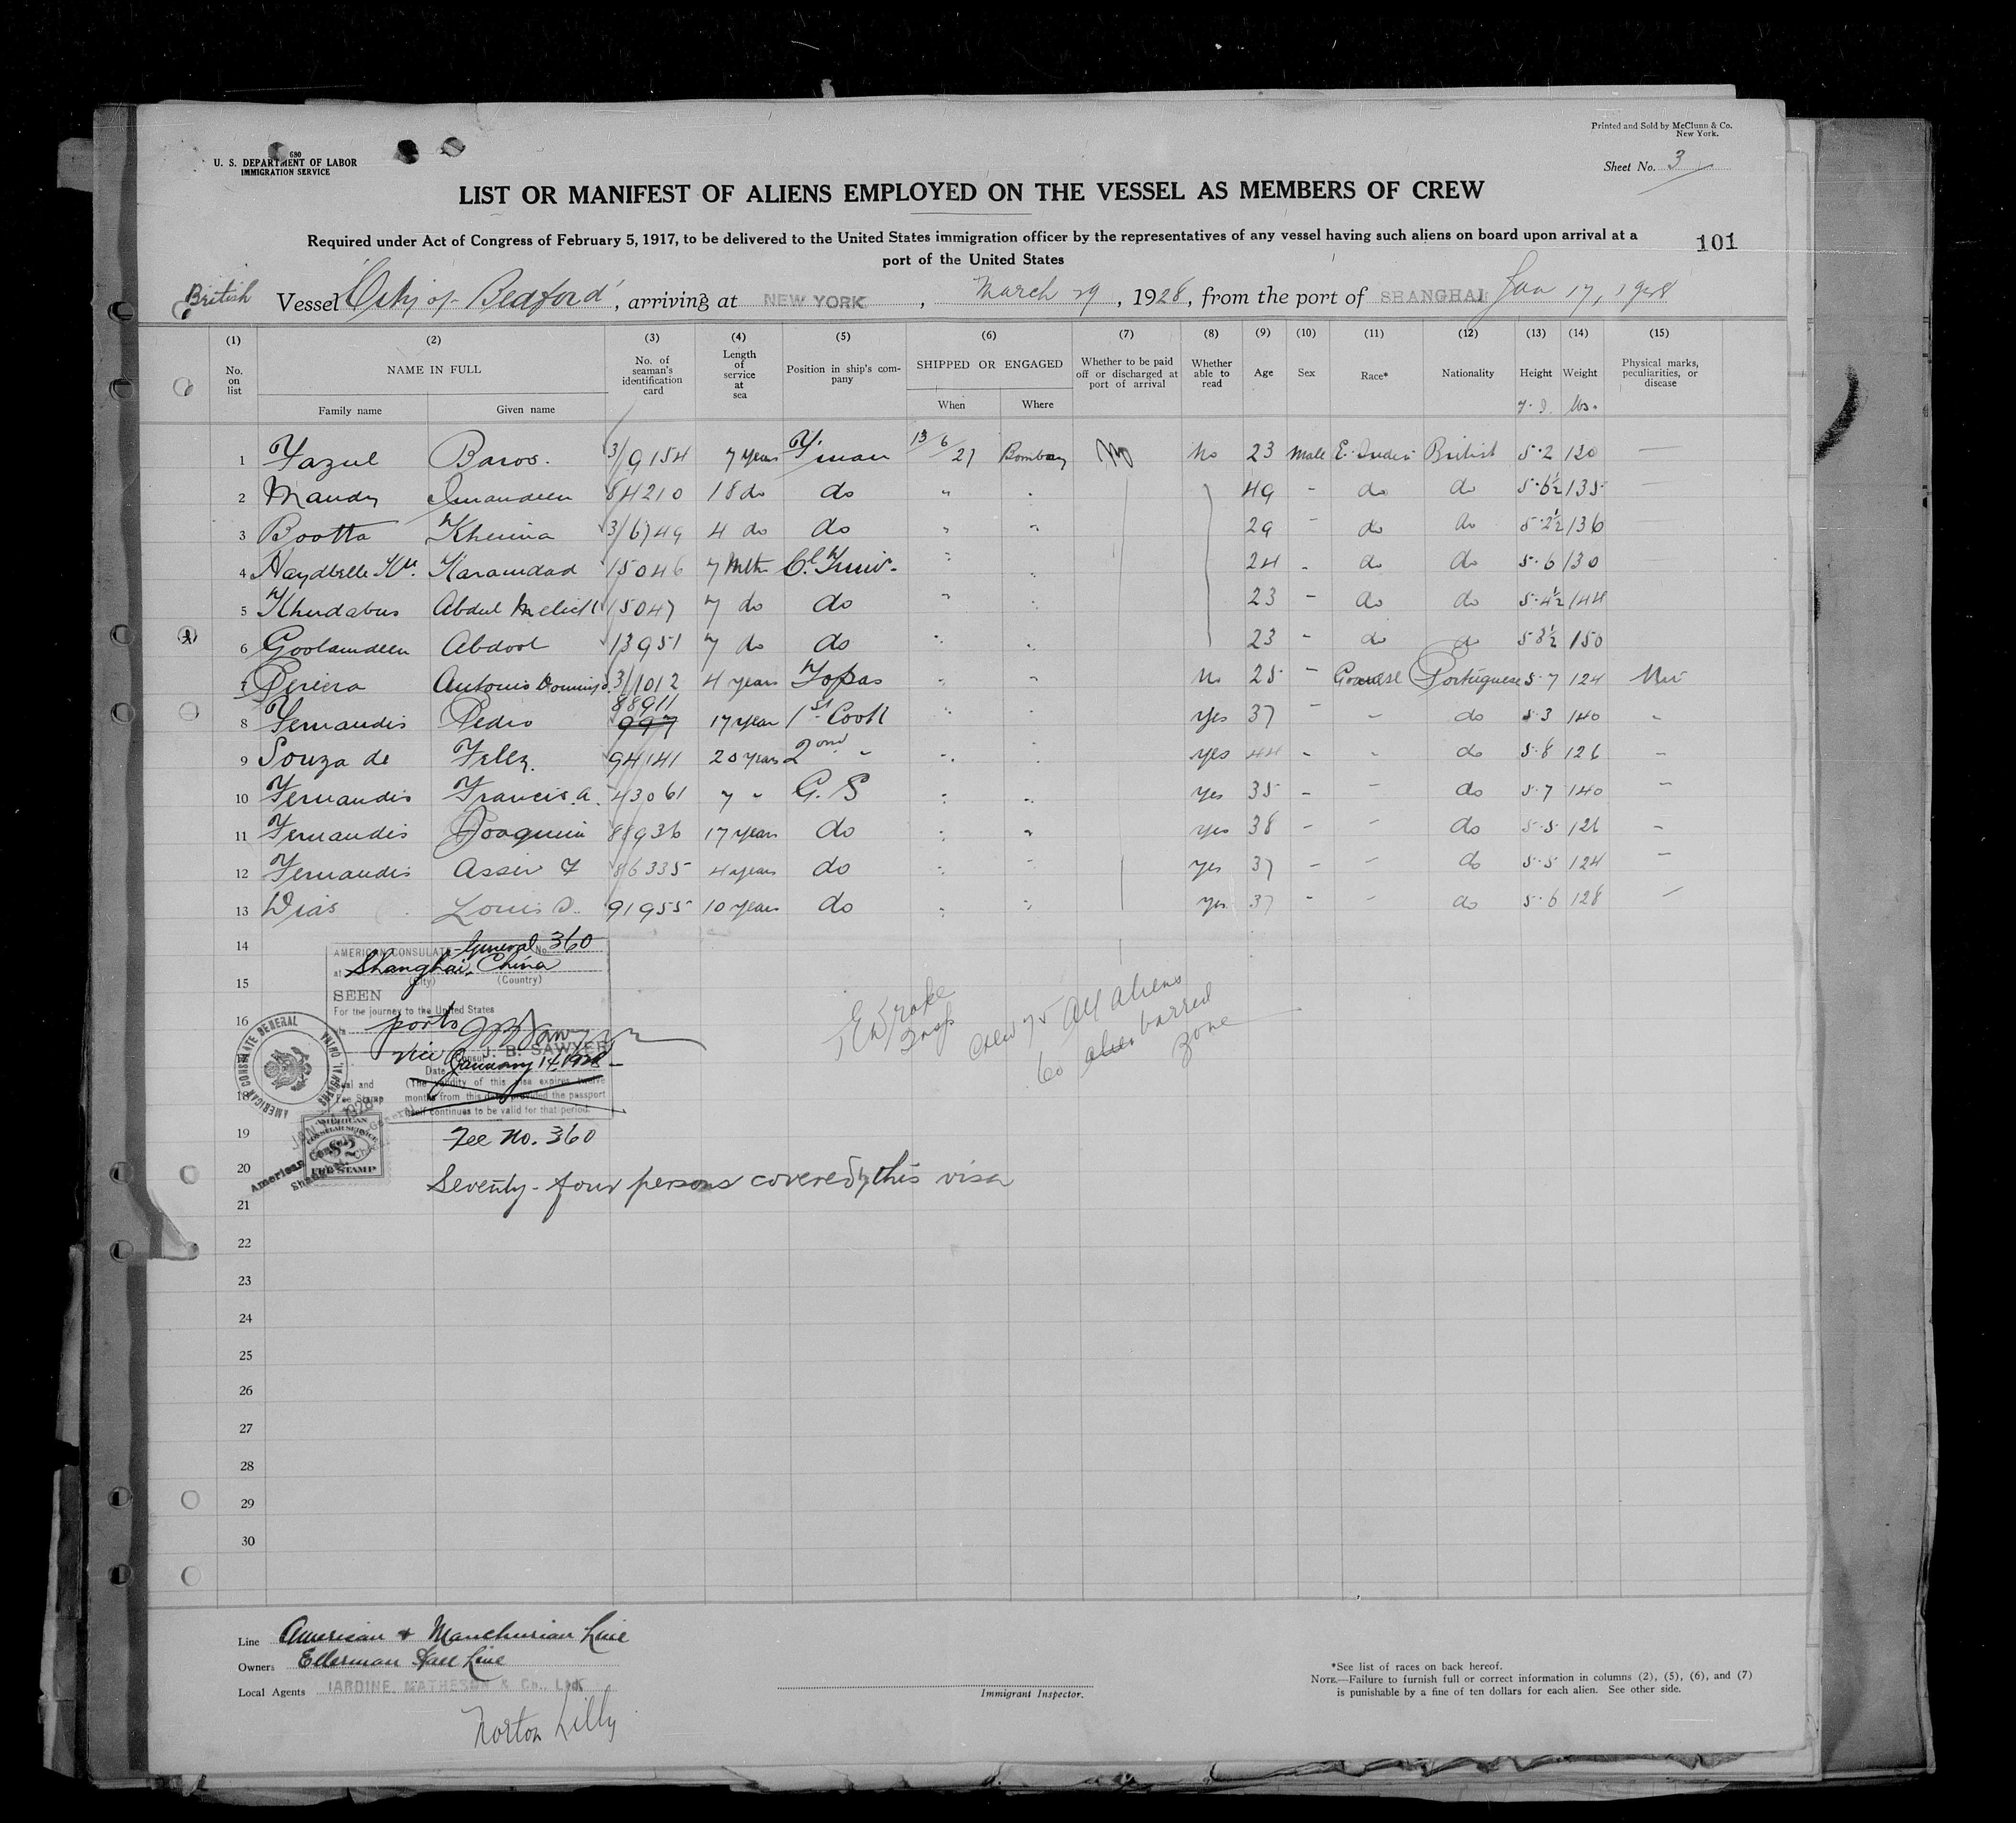 Printed and Sold by McClunn & Co.
New York.
680
U. S. DEPARTMENT OF LABOR
IMMIGRATION SERVICE
Sheet No. 3
LIST OR MANIFEST OF ALIENS EMPLOYED ON THE VESSEL AS MEMBERS OF CREW
Required under Act of Congress of February 5, 1917, to be delivered to the United States immigration officer by the representatives of any vessel having such aliens on board upon arrival at a
port of the United States
101
British Vessel "City of Bedford", arriving at NEW YORK, March 29, 1928, from the port of SHANGHAI Jan 17, 1928
(1) (2) (3) (4) (5) (6) (7) (8) (9) (10) (11) (12) (13) (14) (15)
No. on list
NAME IN FULL
Family name
Given name
No. of seaman's identification card
Length of service at sea
Position in ship's company
SHIPPED OR ENGAGED
When
Where
Whether to be paid off or discharged at port of arrival
Whether able to read
Age
Sex
Race*
Nationality
Height
Weight
lbs.
Physical marks, peculiarities, or disease
1 Fazul Baroo. 3/9154 7 years F'man 13/6/27 Bombay No No 23 Male E. Indei British 5.2 120 —
2 Mandy Imamdeen 84210 18 do do " " 49 - do do 5.6½ 135 —
3 Bootta Kherina 3/6749 4 do do " " 29 - do do 5.2½ 136 —
4 Karamdad 15046 7 Mth " " 24 - do do 5.6 130
5 Khudabus Abdul 15047 7 do do " " 23 - do do 5.4½ 144
6 Goolamdeen Abdool 13951 7 do do " " 23 - do do 5 8½ 150
7 Pereira Antonio Domingo. 3/1012 4 years Topas " " No 25 - Goanese Portuguese 5.7 124 Nil
8 Fernandis Pedro 88911 997 17 year 1st Cook " " yes 37 - - do 5.3 140 -
9 Souza de Felix. 94141 20 years 2nd " " " yes 44 - - do 5.8 126 -
10 Fernandis Francis. A. 43061 7 " G. S " " yes 35 - - do 5.7 140 -
11 Fernandis Joaquim 88936 17 years do " " yes 38 - - do 5.5 126 -
12 Fernandis Assis F 86335 4 years do " " yes 37 - - do 5.5 124 -
13 Dias Louis D. 91955 10 years do " " yes 37 - - do 5.6 128 -
14
15
16
18
19
20
21
22
23
24
25
26
27
28
29
30
AMERICAN CONSULATE General No. 360
at Shanghai, China
(City) (Country)
SEEN
For the journey to the United States
ports
J. B. SAWYER
Consul
Date January 14, 1928
(The validity of this visa expires twelve
months from this date provided the passport
itself continues to be valid for that period.
Seal and
Fee Stamp
AMERICAN CONSULATE GENERAL SHANGHAI, CHINA
AMERICAN
CONSULAR SERVICE
$2
FEE STAMP
Fee No. 360
Seventy-four persons covered by this visa
Insp
Crew 75 All aliens
60 alien barred
zone
Line American & Manchurian Line
Owners Ellerman Hall Line
Local Agents JARDINE, MATHESON & Co., Ltd.
Norton Lilly
Immigrant Inspector.
*See list of races on back hereof.
NOTE.—Failure to furnish full or correct information in columns (2), (5), (6), and (7)
is punishable by a fine of ten dollars for each alien. See other side.